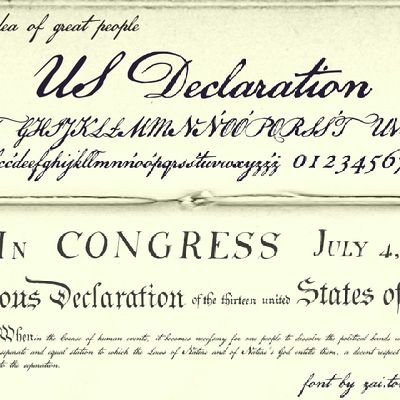 dea of great people
US Declaration
GHIJKLŁMNŃOÓPQRSŚT UV
cćdeęfghijklłmnńoópqrsśtuvwxyzźż 01234567
IN CONGRESS JULY 4,
ous Declaration of the thirteen united States of
When in the Course of human events, it becomes necessary for one people to dissolve the political bands
separate and equal station to which the Laws of Nature and of Nature's God entitle them, a decent respect
to the separation.
font by zai.to